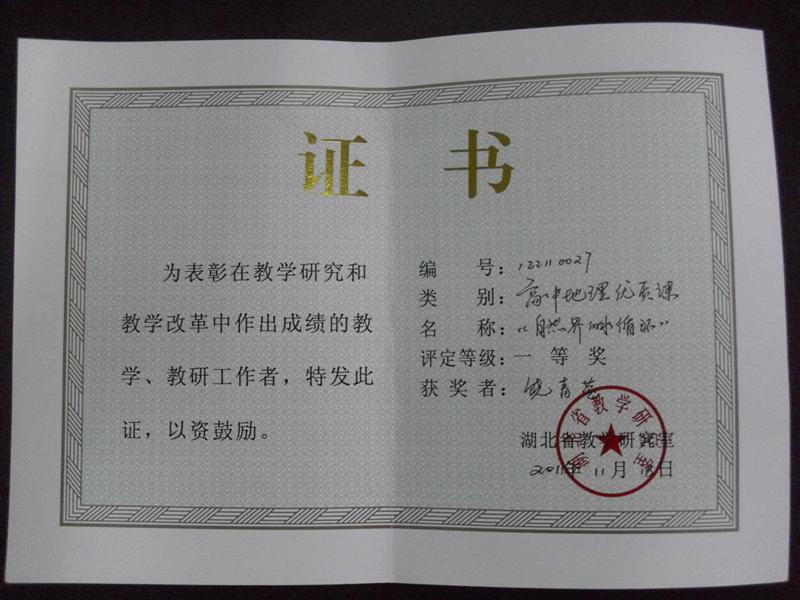 证书
为表彰在教学研究和
教学改革中作出成绩的教
学、教研工作者，特发此
证，以资鼓励。
编号：122110027
类别：高中地理优质课
名称：“自然界水循环”
评定等级：一等奖
获奖者：饶青
湖北省教学研究室
2011年11月日